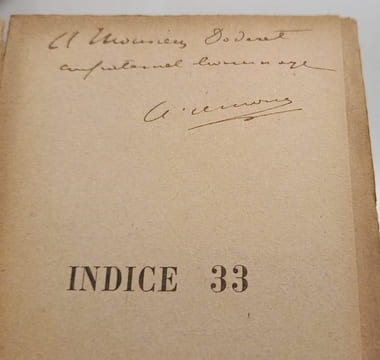 A Monsieur Doderet
confraternel hommage
INDICE 33